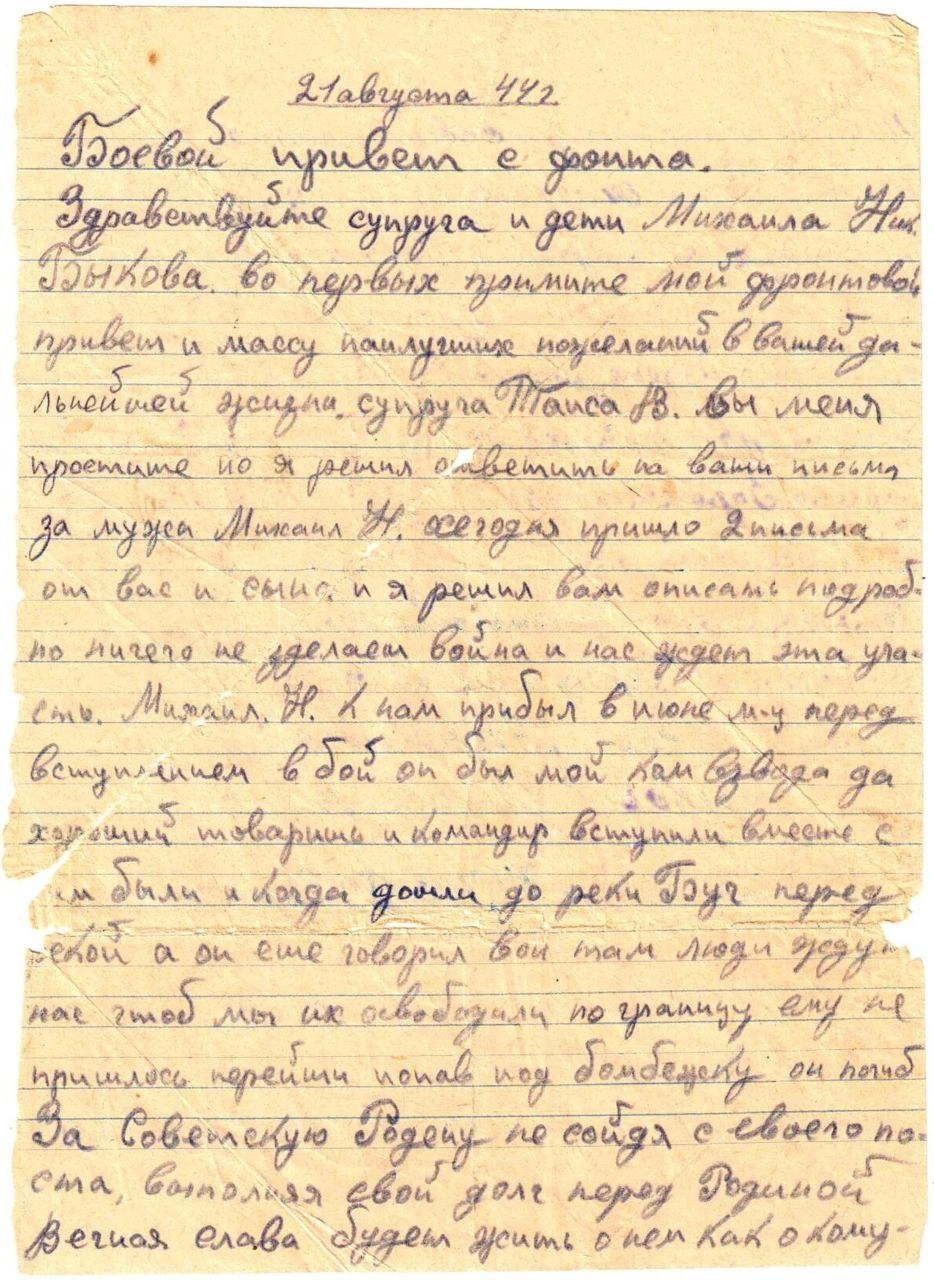 21 августа 44 г.
Боевой привет с фронта.
Здравствуйте супруга и дети Михаила Ник.
Быкова. во первых примите мой фронтовой
привет и массу наилучших пожеланий в вашей да-
льнейшей жизни. супруга Таиса В. вы меня
простите но я решил ответить на ваши письма
за мужа Михаил Н. сегодня пришло 2 письма
от вас и сына и я решил вам описать подроб-
но ничего не зделаеш война и нас ждет эта уча-
сть. Михаил. Н. к нам прибыл в июне м-ц перед
вступлением в бой он был мой ком взвода да
хороший товарищь и командир вступили вместе с
им были и когда дошли до реки Буг перед
екой а он еще говорил вон там люди ждут
нас чтоб мы их освободили но границу ему не
пришлось перейти попав под бомбежку он погиб
За Советскую Родену не сойдя с своего по-
ста, выполняя свой долг перед Родиной
Вечная слава будет жить о нем как о кому-